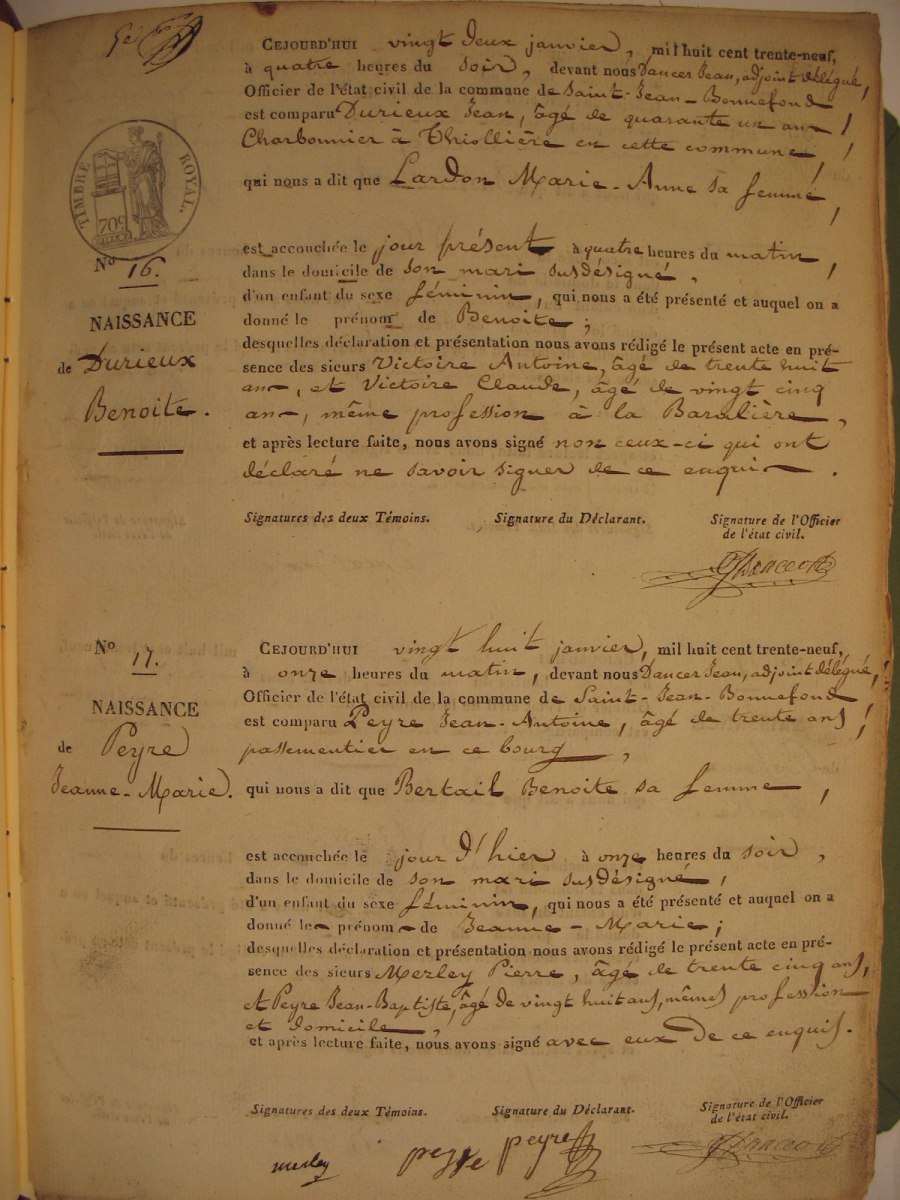 5e
TIMBRE ROYAL.
709
No 16.
NAISSANCE
de Durieux
Benoite.
CEJOURD'HUI vingt deux janvier, mil huit cent trente-neuf,
à quatre heures du soir, devant nous Dancer Jean, adjoint délégué,
Officier de l'état civil de la commune de Saint-Jean-Bonnefond
est comparu Durieux Jean, âgé de quarante un ans,
Charbonnier à Thiollière en cette commune,
qui nous a dit que Lardon Marie-Anne sa femme,
est accouchée le jour présent à quatre heures du matin,
dans le domicile de son mari susdésigné,
d'un enfant du sexe féminin, qui nous a été présenté et auquel on a
donné le prénom de Benoite;
desquelles déclaration et présentation nous avons rédigé le présent acte en pré-
sence des sieurs Victoire Antoine, âgé de trente huit
ans, et Victoire Claude, âgé de vingt cinq
ans, même profession à la Baralière,
et après lecture faite, nous avons signé non ceux-ci qui ont
déclaré ne savoir signer de ce enquis.
Signatures des deux Témoins. Signature du Déclarant. Signature de l'Officier
de l'état civil.
No 17.
NAISSANCE
de Peyre
Jeanne-Marie.
CEJOURD'HUI vingt huit janvier, mil huit cent trente-neuf,
à onze heures du matin, devant nous Dancer Jean, adjoint délégué,
Officier de l'état civil de la commune de Saint-Jean-Bonnefond
est comparu Peyre Jean-Antoine, âgé de trente ans,
passementier en ce bourg,
qui nous a dit que Bertail Benoite sa femme,
est accouchée le jour d'hier à onze heures du soir,
dans le domicile de son mari susdésigné,
d'un enfant du sexe féminin, qui nous a été présenté et auquel on a
donné le prénom de Jeanne-Marie;
desquelles déclaration et présentation nous avons rédigé le présent acte en pré-
sence des sieurs Merley Pierre, âgé de trente cinq ans,
et Peyre Jean-Baptiste, âgé de vingt huit ans, mêmes profession
et domicile,
et après lecture faite, nous avons signé avec eux de ce enquis.
Signatures des deux Témoins. Signature du Déclarant. Signature de l'Officier
de l'état civil.
merley peyre peyre